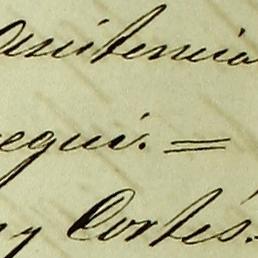 asistencia
egui. =
y Cortés.